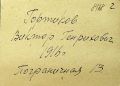 898 2
Гортиков
Виктор Генрихович
1916г.
Пограничная 13